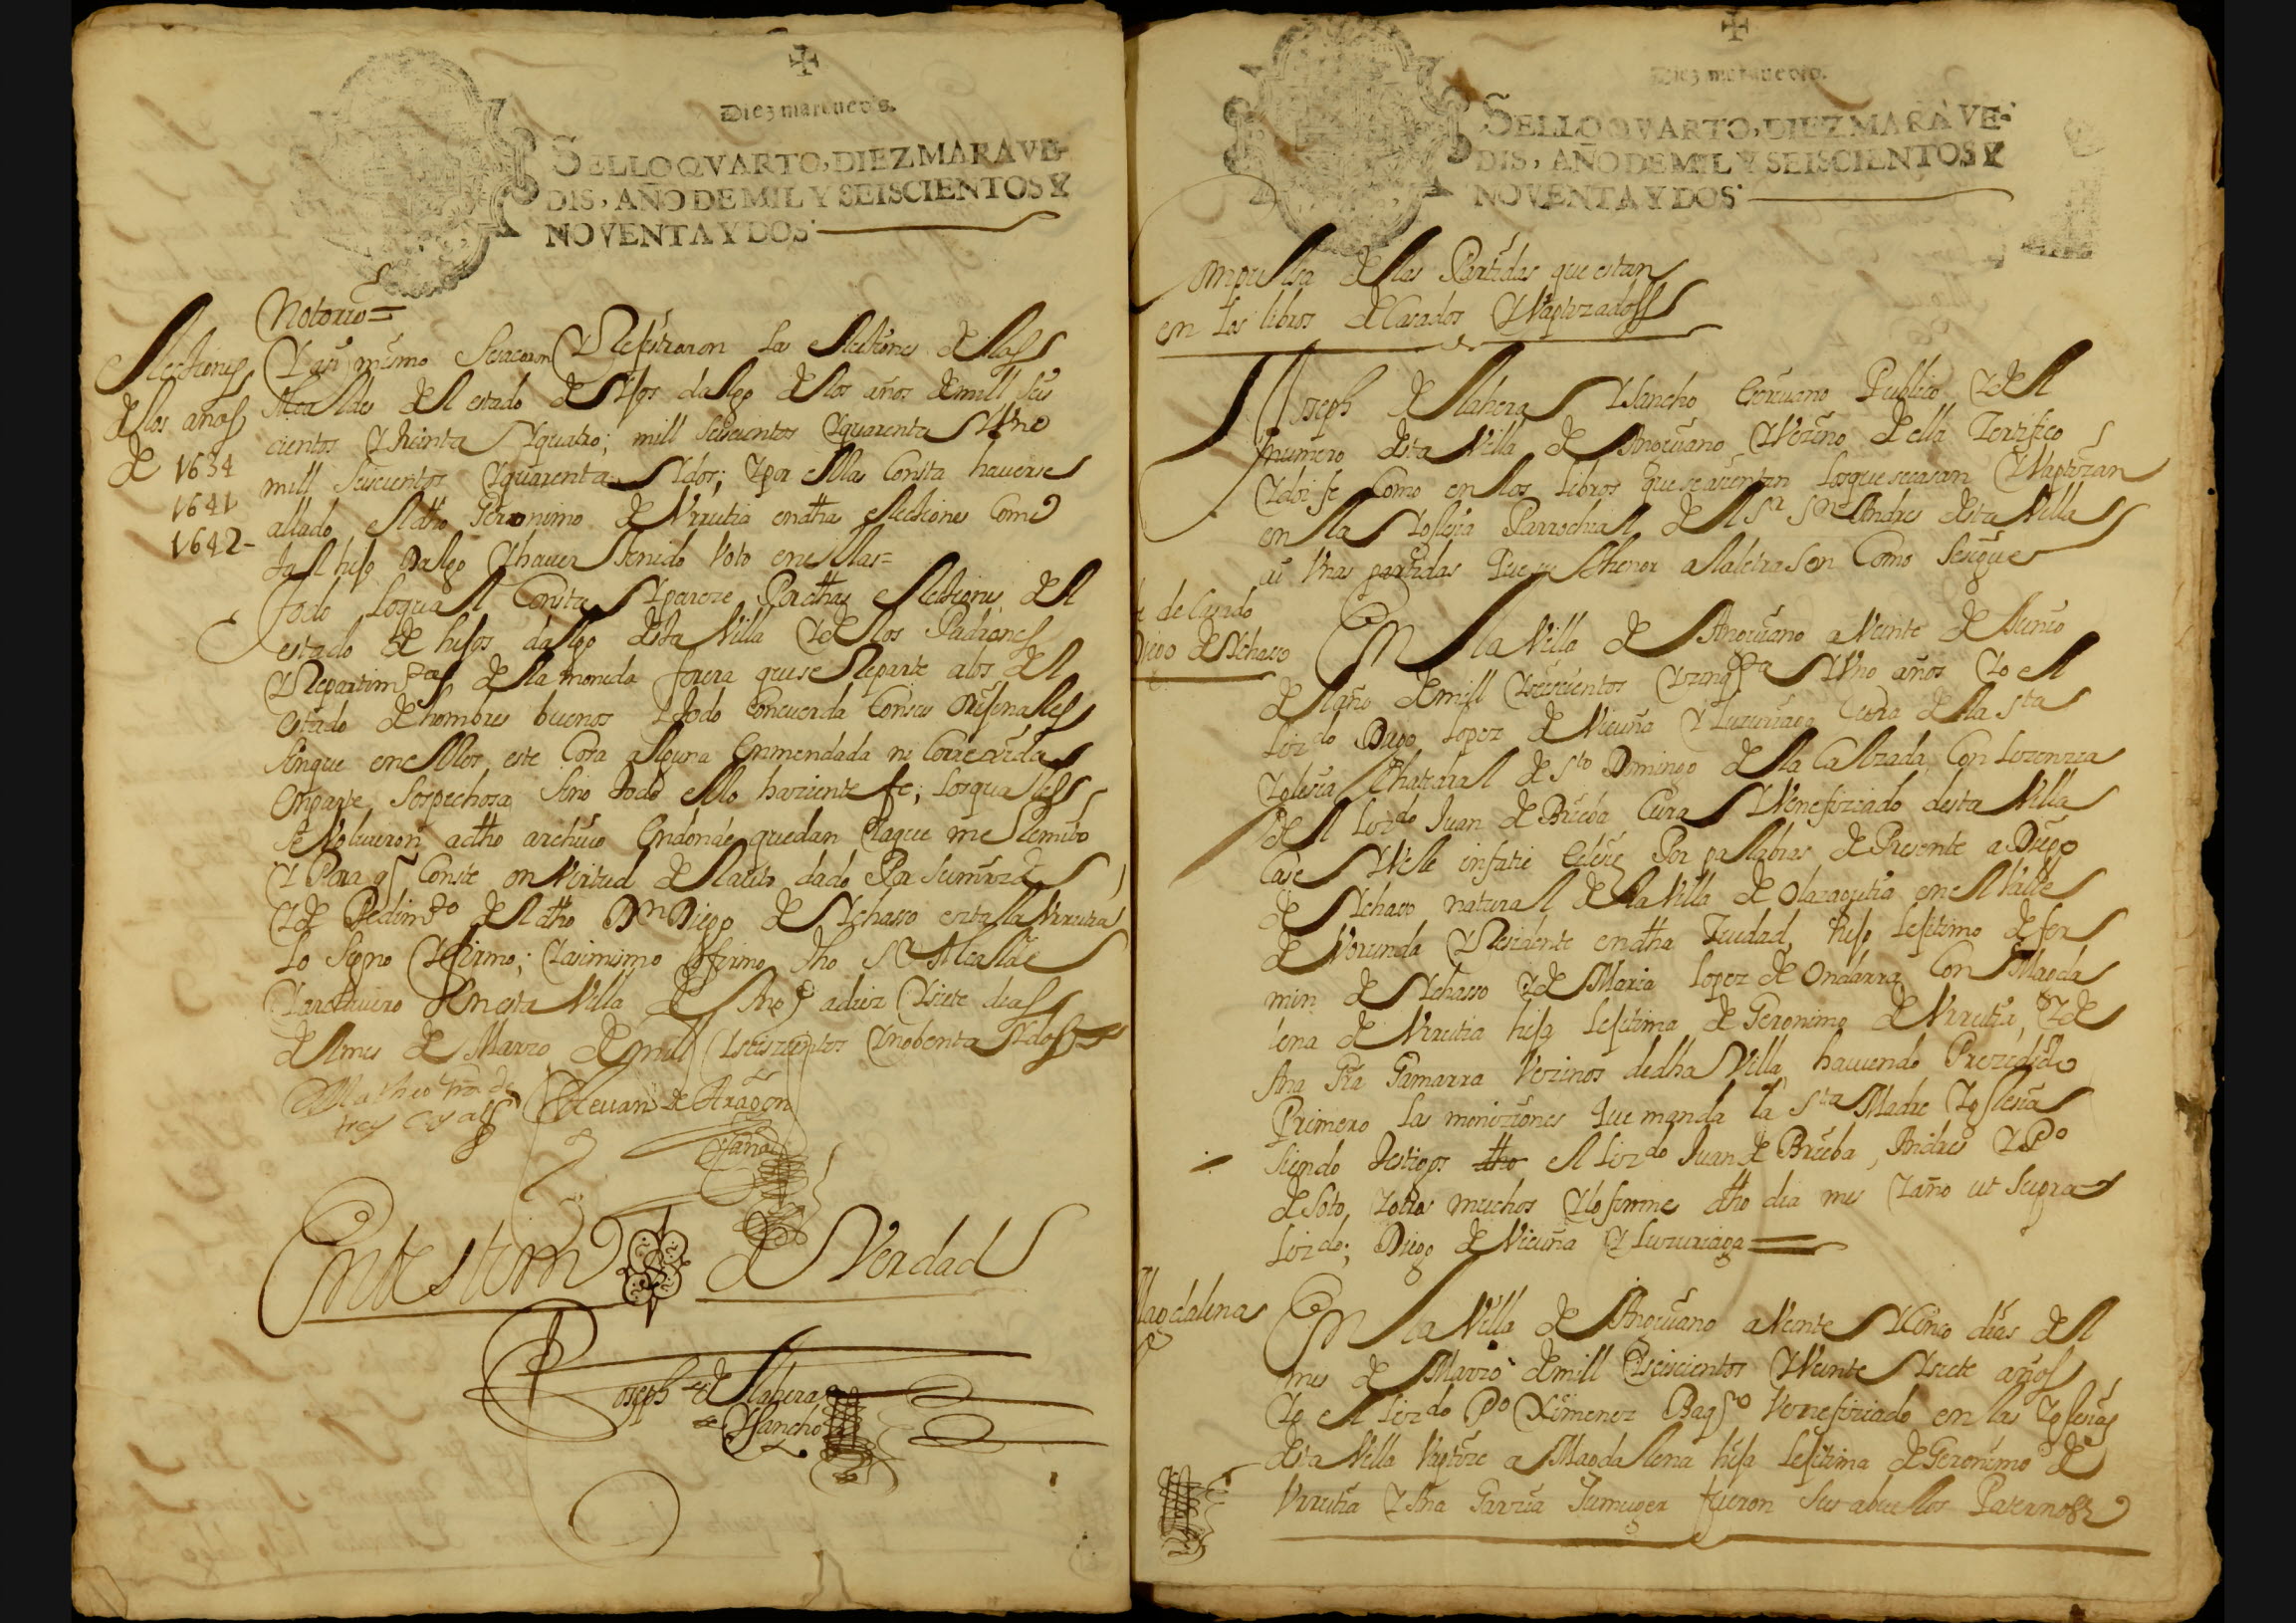 Diez marauedis.
SELLO QVARTO, DIEZ MARAVE-
DIS, AÑO DE MIL Y SEISCIENTOS Y
NOVENTA Y DOS.
Notorio =
Elecciones
de los años
de 1634
1641
1642-
Y asi mismo se sacaron Y Rejistraron las elecciones de las
Alcaldes del estado de Hijos dalgo de los años de mill seis
cientos Y treinta Y quatro; mill seiscientos Y quarenta Y Uno
mill seiscientos Y quarenta Y dos; Y por ellas Consta hauerse
allado el dho Geronimo de Urrutia en dha elecciones Como
tal hijo Dalgo Y hauer tenido Voto en ellas =
todo lo qual Consta Y pareze Por dhas elecciones del
estado de hijos dalgo desta Villa Y de los Padrones
Y Repartimtos de la moneda forera que se Reparte a los del
estado de hombres buenos Y todo Concuerda Con sus orijinales
sin que en ellos este Cosa alguna enmendada ni Correxida
en parte sospechosa sino todo ello haziente fe; los quales
se Voluieron a dho archiuo en donde quedan a que me Remito
Y Para q Conste en Virtud del auto dado Por su mrzd
Y de Pedimto del dho Dn Diego de Ichasso Urrutia
lo signo Y firmo; Y asimismo lo firmo dho Sr Alcalde
Y archiuero en esta Villa de a diez Y siete dias
del mes de Marzo de mill Y seiszientos Y nobenta Y dos
Matheo
Esteuan de Aragon
En testimo de Verdad
Joseph de la hera
Y Sancho
Diez marauedis.
SELLO QVARTO, DIEZ MARAVE-
DIS, AÑO DE MIL Y SEISCIENTOS Y
NOVENTA Y DOS.
Compulsa de las Partidas que estan
en los libros de Casados Y Vaptizados
Joseph de la hera Y Sancho Escriuano Publico Y del
numero desta Villa de Anguiano Y Vezino de ella Zertifico
Y doi fe Como en los libros que se asientan los que se casan Y Vaptizan
en la Yglesia Parrochial del Sr Sn Andres desta Villa
ai Unas partidas Que su thenor a la letra son Como se sigue
de Casado
Diego de Ichasso
En la Villa de Anguiano a Veinte de Junio
del año de mill Y seiscientos Y zinqta Y Uno años Yo el
Lizdo Diego Lopez de Vicuña Y Luzuriaga Cura de la Sta
Yglesia Chatedral de Sto Domingo de la Calzada, Con lizenzia
del Lizdo Juan de Brieba Cura Y Venefiziado desta Villa
Case Y Vele infatie Eclesie Por palabras de Presente a Diego
de Ichasso natural de la Villa de Olazagutia en el Valle
de Vorunda Y Residente en dha Ziudad, hijo lejitimo de fer
min de Ichasso Y de Maria Lopez de Ondarra, Con Magda
lena de Urrutia hija lejitima de Geronimo de Urrutia, Y de
Ana Gamarra Vezinos de dha Villa, hauiendo Prezedido
Primero las moniziones Que manda la Sta Madre Yglesia
siendo testigos dho el Lizdo Juan de Brieba, Andres Y Po
de Soto, Y otros muchos Y lo firme dho dia mes Y año ut supra
Lizdo; Diego de Vicuña Y Luzuriaga =
Magdalena
En la Villa de Anguiano a Veinte Y Cinco dias del
mes de Marzo de mill Y seiscientos Y Veinte Y siete años
Yo el Lizdo Po Ximenez Venefiziado en las Yglesias
desta Villa Vaptize a Magdalena hija lejitima de Geronimo de
Urrutia Y Ana Garzia su muger fueron sus abuelos Paternos